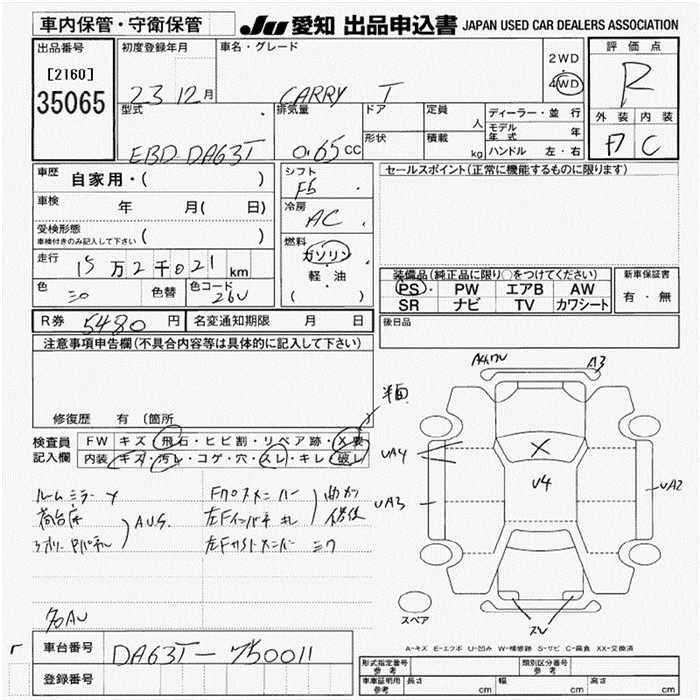 車内保管・守衛保管
JU 愛知 出品申込書 JAPAN USED CAR DEALERS ASSOCIATION
出品番号
[2160]
35065
初度登録年月
23 12月
車名・グレード
CARRY T
2WD
4WD
評価点
R
外装 内装
C
型式
EBD-DA63T
排気量
0.65cc
ドア
形状
定員
人
積載
kg
ディーラー・並行
モデル年式 年
ハンドル 左・右
車歴 自家用・( )
車検 年 月( 日)
受検形態
車検付きのみ記入して下さい ( )
走行 15万2千021km
色 色替 色コード 26U
シフト
F5
冷房
AC
燃料
ガソリン
軽・油
( )
セールスポイント(正常に機能するものに限ります)
装備品(純正品に限り○をつけてください)
PS・PW エアB AW
SR ナビ TV カワシート
新車保証書
有・無
後日品
R券 5480円 名変通知期限 月 日
注意事項申告欄(不具合内容等は具体的に記入して下さい)
修復歴 有 (箇所
検査員記入欄
FW キズ・飛石・ヒビ割・リペア跡・X要
内装 キズ・汚レ・コゲ・穴・スレ・キレ・破レ
ルームミラーナ
荷台床
A,U,S
A3
UA4
UA3
U4
UA2
スペア
車台番号 DA63T-750011
登録番号
A-キズ E-エクボ U-凹み W-補修跡 S-サビ C-腐食 XX-交換済
形式指定番号 参考
類別区分番号 参考
車庫証明用 参考 長さ cm 幅 cm 高さ cm